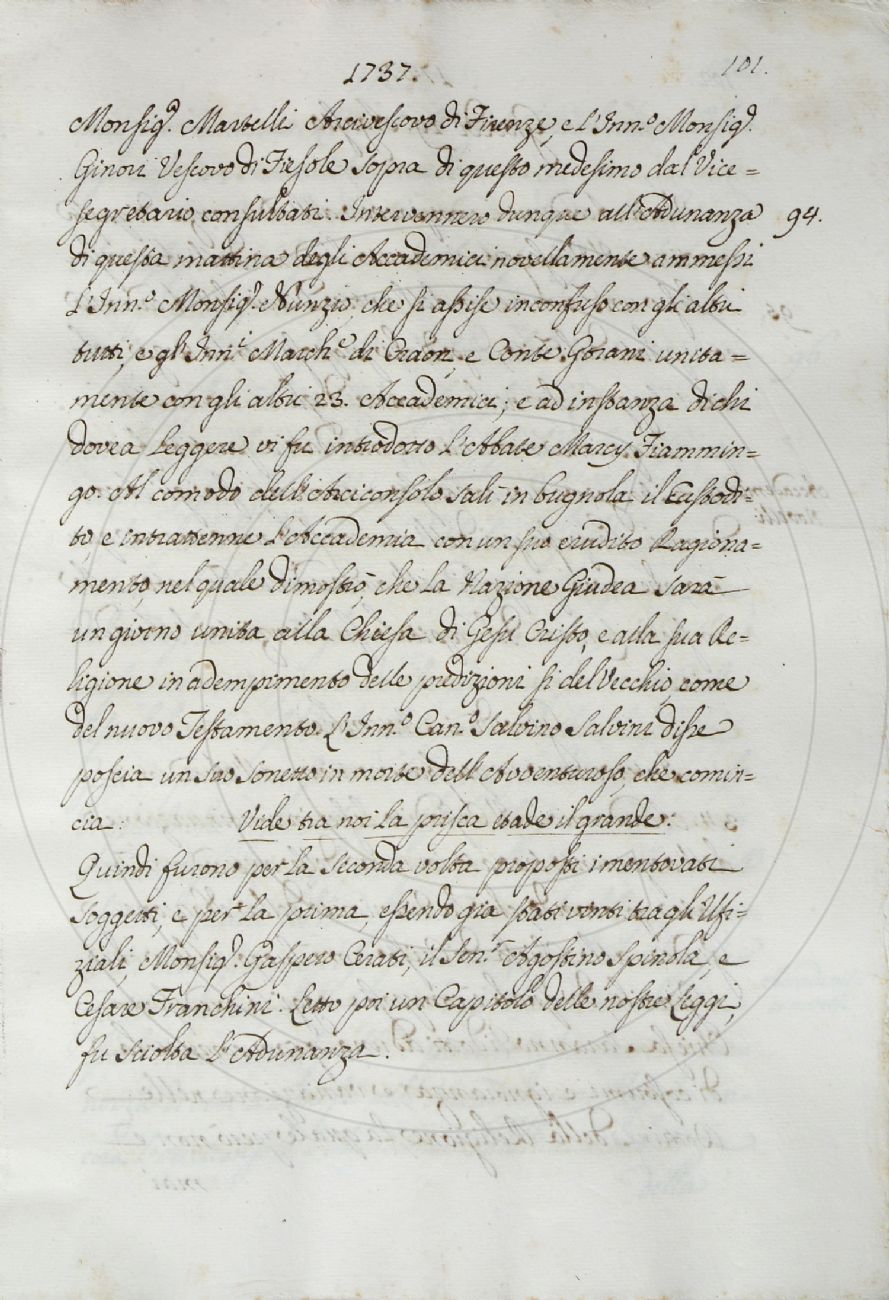 1737.
101.
Monsig.r Martelli Arcivescovo di Firenze, e l'Inn.o Monsig.r
Ginori Vescovo di Fiesole sopra di questo medesimo dal Vice=
segretario consultati. Intervennero dunque all'Adunanza
94.
di questa mattina degli Accademici novellamente ammessi
l'Inn.o Monsig.r Nunzio che si assise inconfuso con gli altri
tutti, e gl'Inn.i March.e di Craon, e Conte Gorani unita=
mente con gli altri 23. Accademici; e ad instanza di chi
dovea leggere vi fu introdotto l'Abate Marcy Fiammin=
go. Al comodo dell'Arciconsolo salì in bugnola il Custodi=
to, e intrattenne l'Accademia con un suo erudito Ragiona=
mento, nel quale dimostrò, che la Nazione Giudea sarà
un giorno unita alla Chiesa di Gesù Cristo, e alla sua Re=
ligione in adempimento delle predizioni sì del Vecchio, come
del nuovo Testamento. L'Inn.o Can.o Salvino Salvini disse
poscia un suo Sonetto in morte dell'Avventuroso, che comin=
cia: Vide tra noi la prisca etade il grande:
Quindi furono per la seconda volta proposti i mentovati
soggetti, e per la prima, essendo già stati vinti tra gli Ufi=
ziali, Monsig.r Gaspero Cerati, il Sen.r Agostino Spinola, e
Cesare Franchini. Letto poi un Capitolo delle nostre Leggi,
fu sciolta l'Adunanza.